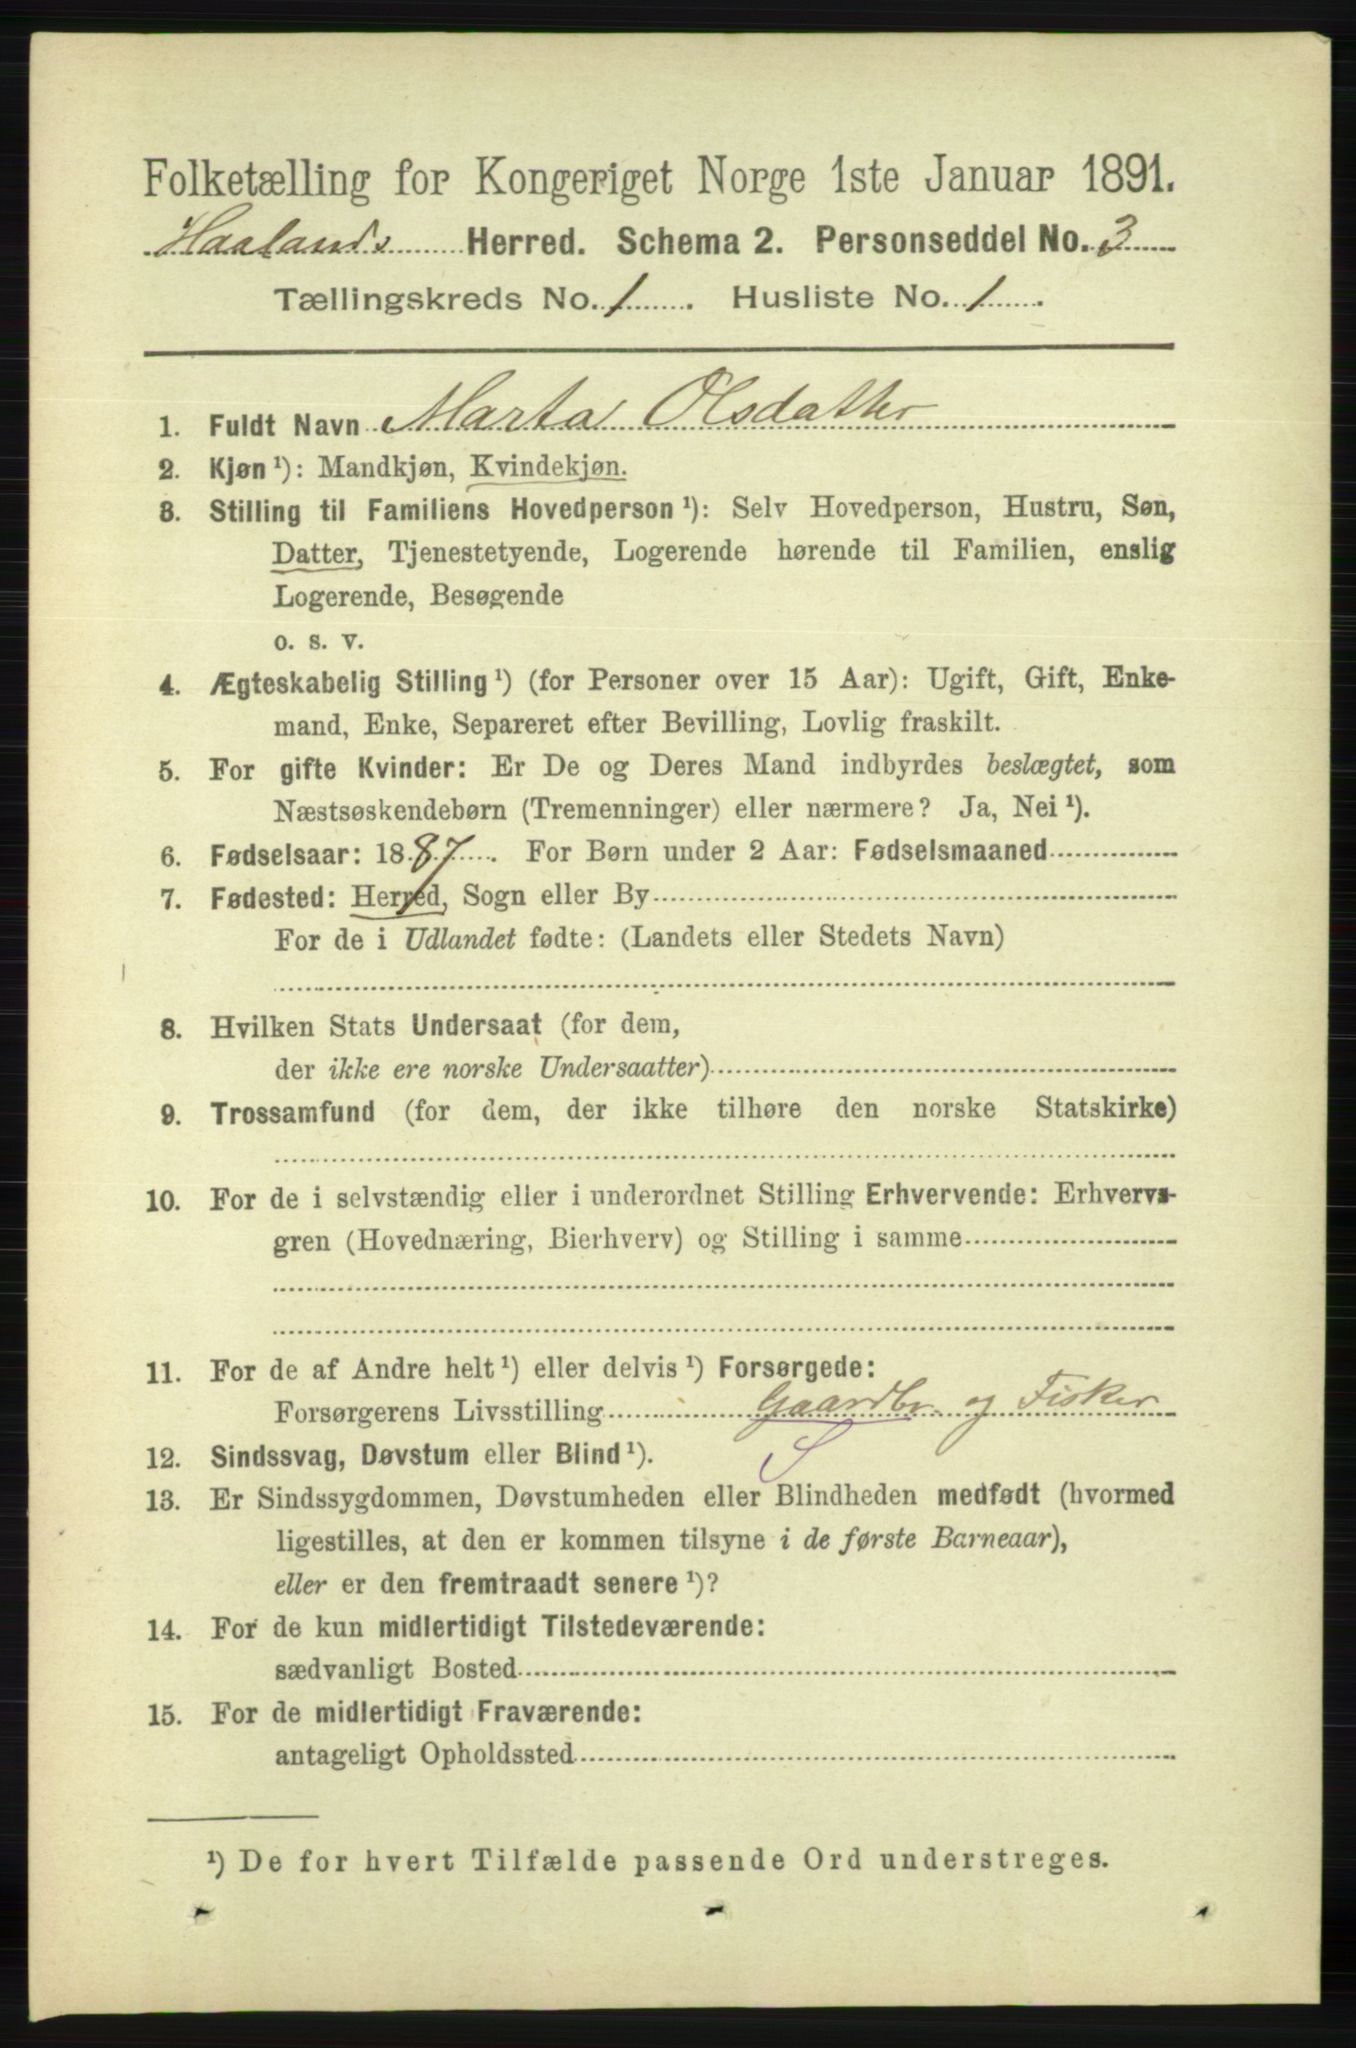 Folketælling for Kongeriget Norge 1ste Januar 1891.
Haalands Herred. Schema 2. Personseddel No. 3
Tællingskreds No. 1. Husliste No. 1.
1. Fuldt Navn Marta Olsdatter
2. Kjøn ¹): Mandkjøn, Kvindekjøn.
3. Stilling til Familiens Hovedperson ¹): Selv Hovedperson, Hustru, Søn,
Datter, Tjenestetyende, Logerende hørende til Familien, enslig
Logerende, Besøgende
o. s. v.
4. Ægteskabelig Stilling ¹) (for Personer over 15 Aar): Ugift, Gift, Enke-
mand, Enke, Separeret efter Bevilling, Lovlig fraskilt.
5. For gifte Kvinder: Er De og Deres Mand indbyrdes beslægtet, som
Næstsøskendebørn (Tremenninger) eller nærmere? Ja, Nei ¹).
6. Fødselsaar: 1887. For Børn under 2 Aar: Fødselsmaaned
7. Fødested: Herred, Sogn eller By
For de i Udlandet fødte: (Landets eller Stedets Navn)
8. Hvilken Stats Undersaat (for dem,
der ikke ere norske Undersaatter)
9. Trossamfund (for dem, der ikke tilhøre den norske Statskirke)
10. For de i selvstændig eller i underordnet Stilling Erhvervende: Erhvervs-
gren (Hovednæring, Bierhverv) og Stilling i samme
11. For de af Andre helt ¹) eller delvis ¹) Forsørgede:
Forsørgerens Livsstilling Gaardbr. og Fisker
12. Sindssvag, Døvstum eller Blind ¹). S
13. Er Sindssygdommen, Døvstumheden eller Blindheden medfødt (hvormed
ligestilles, at den er kommen tilsyne i de første Barneaar),
eller er den fremtraadt senere ¹)?
14. For de kun midlertidigt Tilstedeværende:
sædvanligt Bosted
15. For de midlertidigt Fraværende:
antageligt Opholdssted
¹) De for hvert Tilfælde passende Ord understreges.